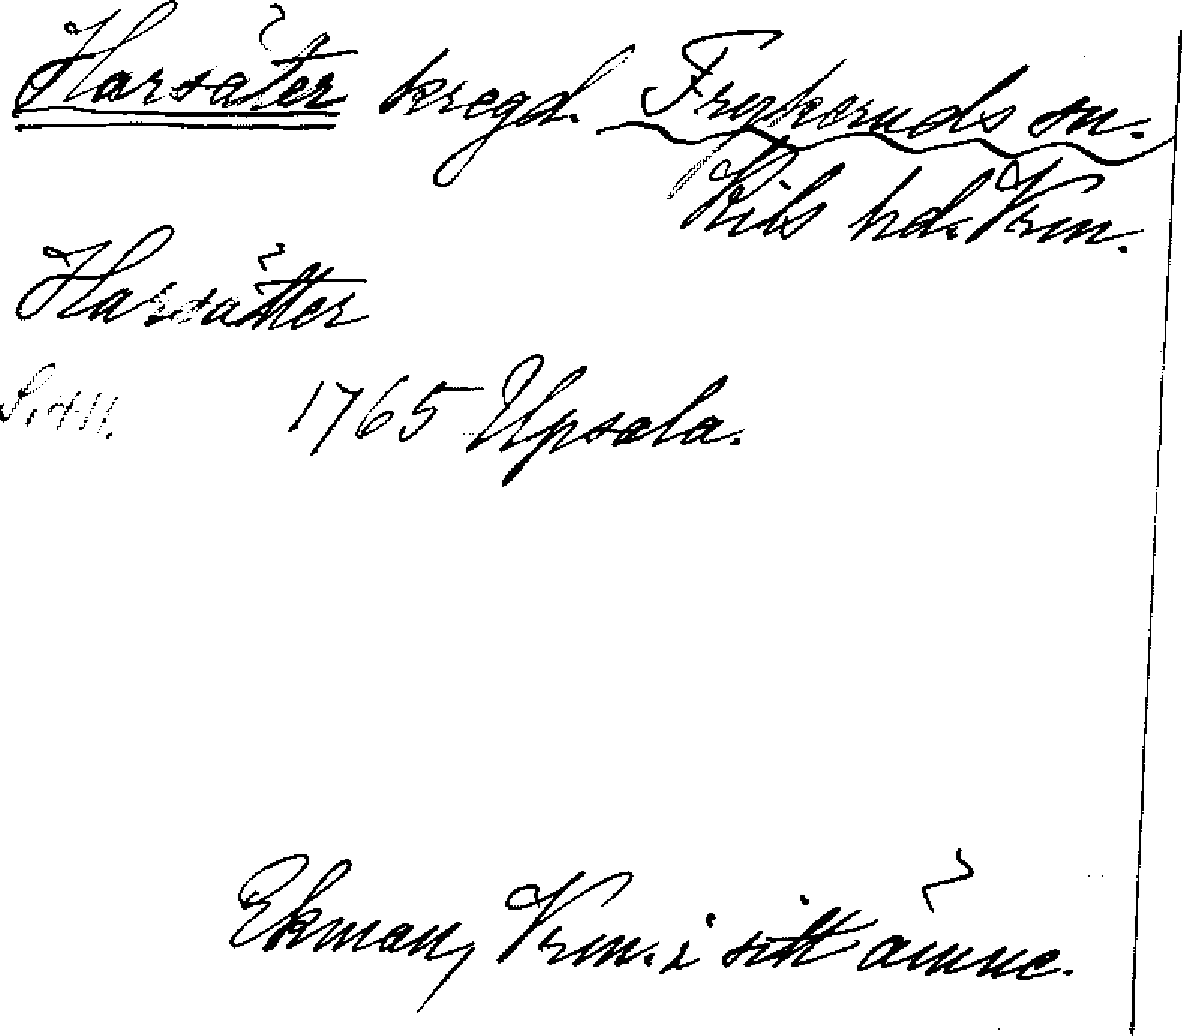 Harsäter kregd. Frykeruds sn.
Kils hd. Vrm.
Harsätter
1765 Upsala.
Ekman, Vrm. i sitt ämne.